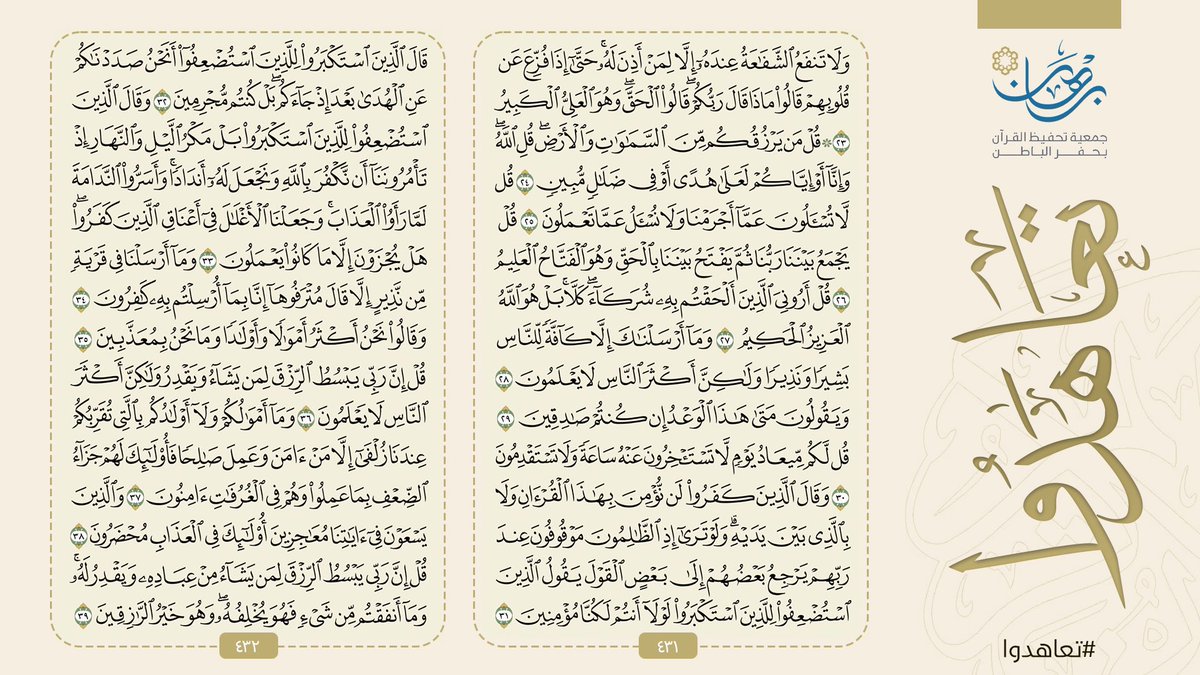 برهان
جمعية تحفيظ القرآن
بحفر الباطن
تعاهدوا
#تعاهدوا
وَلَا تَنفَعُ ٱلشَّفَٰعَةُ عِندَهُۥٓ إِلَّا لِمَنْ أَذِنَ لَهُۥۚ حَتَّىٰٓ إِذَا فُزِّعَ عَن
قُلُوبِهِمْ قَالُوا۟ مَاذَا قَالَ رَبُّكُمْۖ قَالُوا۟ ٱلْحَقَّۖ وَهُوَ ٱلْعَلِىُّ ٱلْكَبِيرُ
٢٣ ۞ قُلْ مَن يَرْزُقُكُم مِّنَ ٱلسَّمَٰوَٰتِ وَٱلْأَرْضِۖ قُلِ ٱللَّهُۖ
وَإِنَّآ أَوْ إِيَّاكُمْ لَعَلَىٰ هُدًى أَوْ فِى ضَلَٰلٍ مُّبِينٍ ٢٤ قُل
لَّا تُسْـَٔلُونَ عَمَّآ أَجْرَمْنَا وَلَا نُسْـَٔلُ عَمَّا تَعْمَلُونَ ٢٥ قُلْ
يَجْمَعُ بَيْنَنَا رَبُّنَا ثُمَّ يَفْتَحُ بَيْنَنَا بِٱلْحَقِّ وَهُوَ ٱلْفَتَّاحُ ٱلْعَلِيمُ
٢٦ قُلْ أَرُونِىَ ٱلَّذِينَ أَلْحَقْتُم بِهِۦ شُرَكَآءَۖ كَلَّاۚ بَلْ هُوَ ٱللَّهُ
ٱلْعَزِيزُ ٱلْحَكِيمُ ٢٧ وَمَآ أَرْسَلْنَٰكَ إِلَّا كَآفَّةً لِّلنَّاسِ
بَشِيرًا وَنَذِيرًا وَلَٰكِنَّ أَكْثَرَ ٱلنَّاسِ لَا يَعْلَمُونَ ٢٨
وَيَقُولُونَ مَتَىٰ هَٰذَا ٱلْوَعْدُ إِن كُنتُمْ صَٰدِقِينَ ٢٩
قُل لَّكُم مِّيعَادُ يَوْمٍ لَّا تَسْتَـْٔخِرُونَ عَنْهُ سَاعَةً وَلَا تَسْتَقْدِمُونَ
٣٠ وَقَالَ ٱلَّذِينَ كَفَرُوا۟ لَن نُّؤْمِنَ بِهَٰذَا ٱلْقُرْءَانِ وَلَا
بِٱلَّذِى بَيْنَ يَدَيْهِۗ وَلَوْ تَرَىٰٓ إِذِ ٱلظَّٰلِمُونَ مَوْقُوفُونَ عِندَ
رَبِّهِمْ يَرْجِعُ بَعْضُهُمْ إِلَىٰ بَعْضٍ ٱلْقَوْلَ يَقُولُ ٱلَّذِينَ
ٱسْتُضْعِفُوا۟ لِلَّذِينَ ٱسْتَكْبَرُوا۟ لَوْلَآ أَنتُمْ لَكُنَّا مُؤْمِنِينَ ٣١
٤٣١
قَالَ ٱلَّذِينَ ٱسْتَكْبَرُوا۟ لِلَّذِينَ ٱسْتُضْعِفُوٓا۟ أَنَحْنُ صَدَدْنَٰكُمْ
عَنِ ٱلْهُدَىٰ بَعْدَ إِذْ جَآءَكُمۖ بَلْ كُنتُم مُّجْرِمِينَ ٣٢ وَقَالَ ٱلَّذِينَ
ٱسْتُضْعِفُوا۟ لِلَّذِينَ ٱسْتَكْبَرُوا۟ بَلْ مَكْرُ ٱلَّيْلِ وَٱلنَّهَارِ إِذْ
تَأْمُرُونَنَآ أَن نَّكْفُرَ بِٱللَّهِ وَنَجْعَلَ لَهُۥٓ أَندَادًاۚ وَأَسَرُّوا۟ ٱلنَّدَامَةَ
لَمَّا رَأَوُا۟ ٱلْعَذَابَۚ وَجَعَلْنَا ٱلْأَغْلَٰلَ فِىٓ أَعْنَاقِ ٱلَّذِينَ كَفَرُوا۟ۖ
هَلْ يُجْزَوْنَ إِلَّا مَا كَانُوا۟ يَعْمَلُونَ ٣٣ وَمَآ أَرْسَلْنَا فِى قَرْيَةٍ
مِّن نَّذِيرٍ إِلَّا قَالَ مُتْرَفُوهَآ إِنَّا بِمَآ أُرْسِلْتُم بِهِۦ كَٰفِرُونَ ٣٤
وَقَالُوا۟ نَحْنُ أَكْثَرُ أَمْوَٰلًا وَأَوْلَٰدًا وَمَا نَحْنُ بِمُعَذَّبِينَ ٣٥
قُلْ إِنَّ رَبِّى يَبْسُطُ ٱلرِّزْقَ لِمَن يَشَآءُ وَيَقْدِرُ وَلَٰكِنَّ أَكْثَرَ
ٱلنَّاسِ لَا يَعْلَمُونَ ٣٦ وَمَآ أَمْوَٰلُكُمْ وَلَآ أَوْلَٰدُكُم بِٱلَّتِى تُقَرِّبُكُمْ
عِندَنَا زُلْفَىٰٓ إِلَّا مَنْ ءَامَنَ وَعَمِلَ صَٰلِحًا فَأُو۟لَٰٓئِكَ لَهُمْ جَزَآءُ
ٱلضِّعْفِ بِمَا عَمِلُوا۟ وَهُمْ فِى ٱلْغُرُفَٰتِ ءَامِنُونَ ٣٧ وَٱلَّذِينَ
يَسْعَوْنَ فِىٓ ءَايَٰتِنَا مُعَٰجِزِينَ أُو۟لَٰٓئِكَ فِى ٱلْعَذَابِ مُحْضَرُونَ ٣٨
قُلْ إِنَّ رَبِّى يَبْسُطُ ٱلرِّزْقَ لِمَن يَشَآءُ مِنْ عِبَادِهِۦ وَيَقْدِرُ لَهُۥۚ
وَمَآ أَنفَقْتُم مِّن شَىْءٍ فَهُوَ يُخْلِفُهُۥۖ وَهُوَ خَيْرُ ٱلرَّٰزِقِينَ ٣٩
٤٣٢